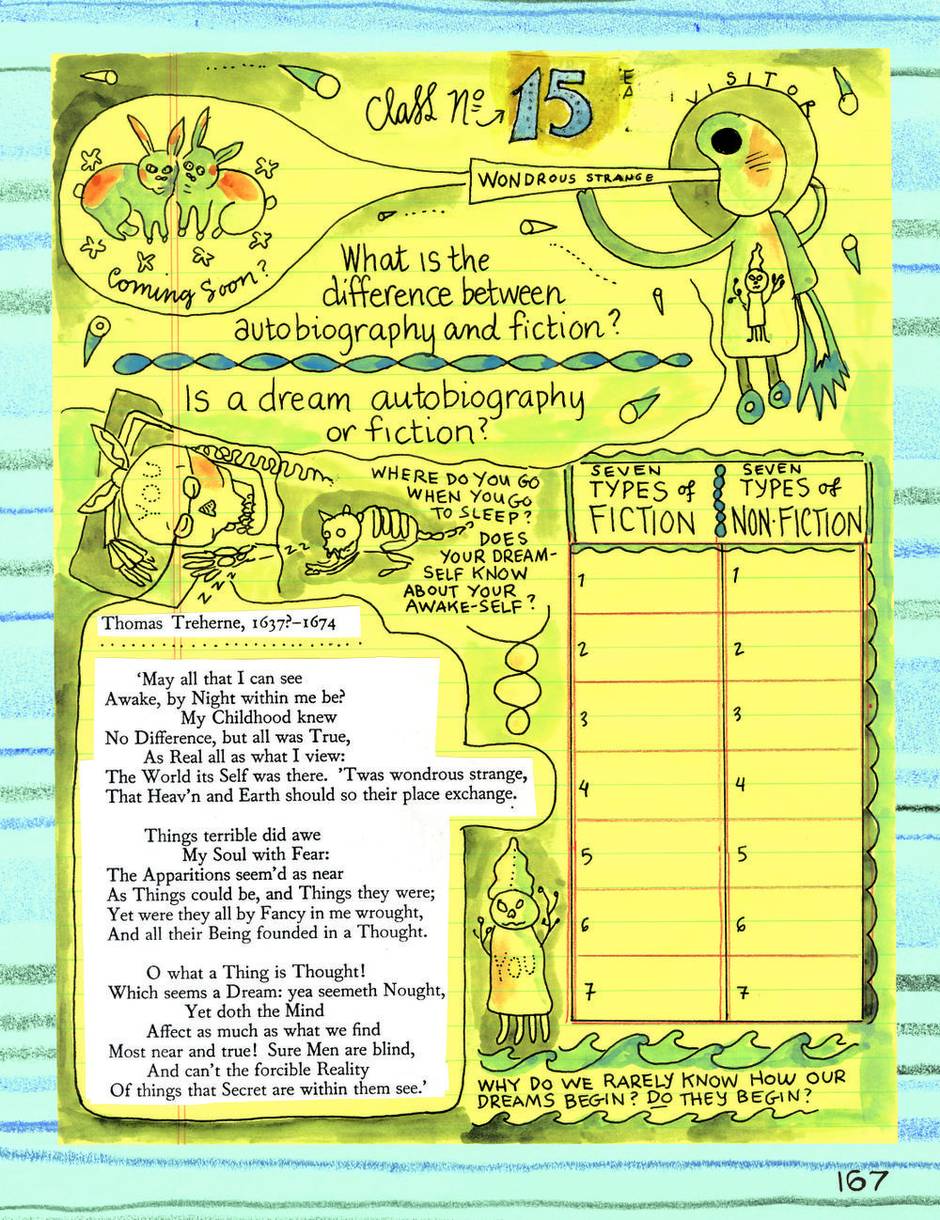 Class No 15
VISITOR
WONDROUS STRANGE
Coming Soon?
What is the
difference between
autobiography and fiction?
Is a dream autobiography
or fiction?
YOU
WHERE DO YOU GO
WHEN YOU GO
TO SLEEP?
DOES
YOUR DREAM-
SELF KNOW
ABOUT YOUR
AWAKE-SELF?
ZZ
ZZZZ
Thomas Treherne, 1637?–1674
'May all that I can see
Awake, by Night within me be?
My Childhood knew
No Difference, but all was True,
As Real all as what I view:
The World its Self was there. 'Twas wondrous strange,
That Heav'n and Earth should so their place exchange.
Things terrible did awe
My Soul with Fear:
The Apparitions seem'd as near
As Things could be, and Things they were;
Yet were they all by Fancy in me wrought,
And all their Being founded in a Thought.
O what a Thing is Thought!
Which seems a Dream: yea seemeth Nought,
Yet doth the Mind
Affect as much as what we find
Most near and true! Sure Men are blind,
And can't the forcible Reality
Of things that Secret are within them see.'
SEVEN
TYPES of
FICTION
SEVEN
TYPES of
NON-FICTION
1 1
2 2
3 3
4 4
5 5
6 6
7 7
YOU
WHY DO WE RARELY KNOW HOW OUR
DREAMS BEGIN? DO THEY BEGIN?
167